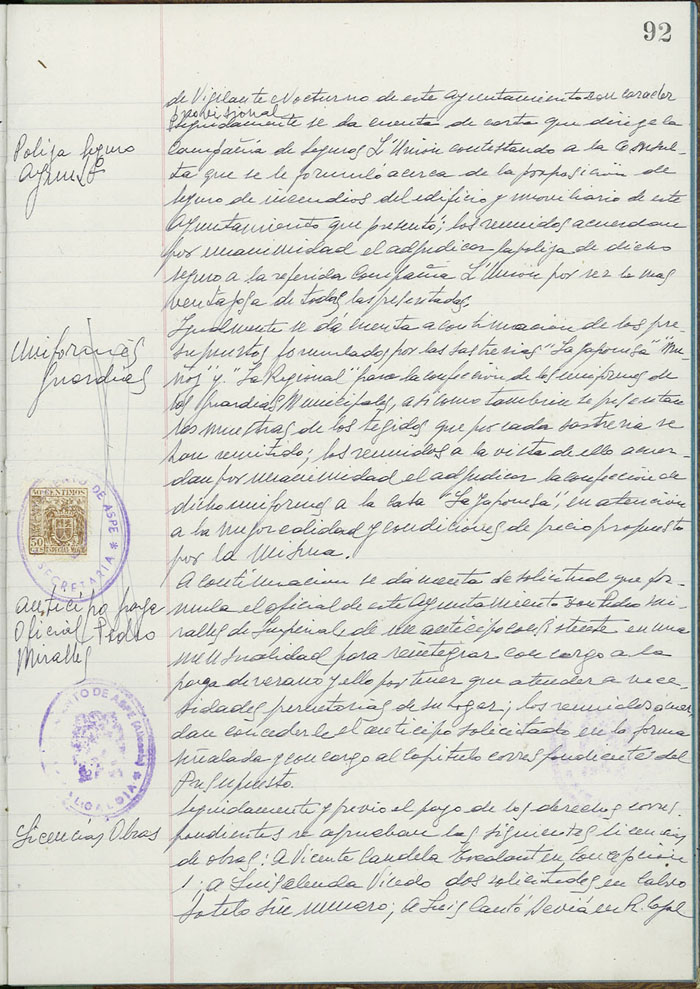 92
de Vigilante Nocturno de este Ayuntamiento con caracter
provisional
Seguidamente se da cuenta de carta que dirige la
Compañia de Seguros L'Union contestando a la Consul-
ta que se le formuló acerca de la proposicion de
seguro de incendios del edificio y moviliario de este
Ayuntamiento que presentó; los reunidos acuerdan
por unanimidad el adjudicar la poliza de dicho
seguro a la referida Compañia L'Union por ser la mas
ventajosa de todas las presentadas.
Igualmente se dá cuenta a continuacion de los pre-
supuestos formulados por las sastrerias "La Japonesa"
y "La Regional" para la confeccion de los uniformes de
los Guardias Municipales, asi como tambien se presentan
las muestras de los tegidos que por cada sastreria se
han remitido; los reunidos a la vista de ello acuer-
dan por unanimidad el adjudicar la confeccion de
dicho uniformes a la Casa "La Japonesa", en atencion
a la mejor calidad y condiciones de precio propuesto
por la misma.
A continuacion se da cuenta de solicitud que for-
mula el oficial de este Ayuntamiento Don Pedro Mi-
ralles de un anticipo en una
mensualidad para reintegrar con cargo a la
paga de verano y ello por tener que atender a nece-
sidades perentorias de su hogar; los reunidos acuer-
dan concederle el anticipo solicitado en la forma
señalada y con cargo al Capitulo correspondiente del
Presupuesto.
Seguidamente y previo el pago de los derechos corres-
pondientes se aprueban las siguientes licencias
de obras: A Vicente Candela en Concepcion
1; a Luis Cerdá Vicedo dos solicitudes en Calvo
Sotelo sin numero; a Luis Cantó Deviá en R. Cajal
Poliza Seguro
Ayunt.
Uniformes
Guardias
50 CENTIMOS
50
CTS
ESPECIAL MOVIL
AYUNTAMIENTO DE ASPE
SECRETARIA
Anticipo paga
Oficial Pedro
Miralles
AYUNTAMIENTO DE ASPE (Alicante)
ALCALDIA
Licencias Obras